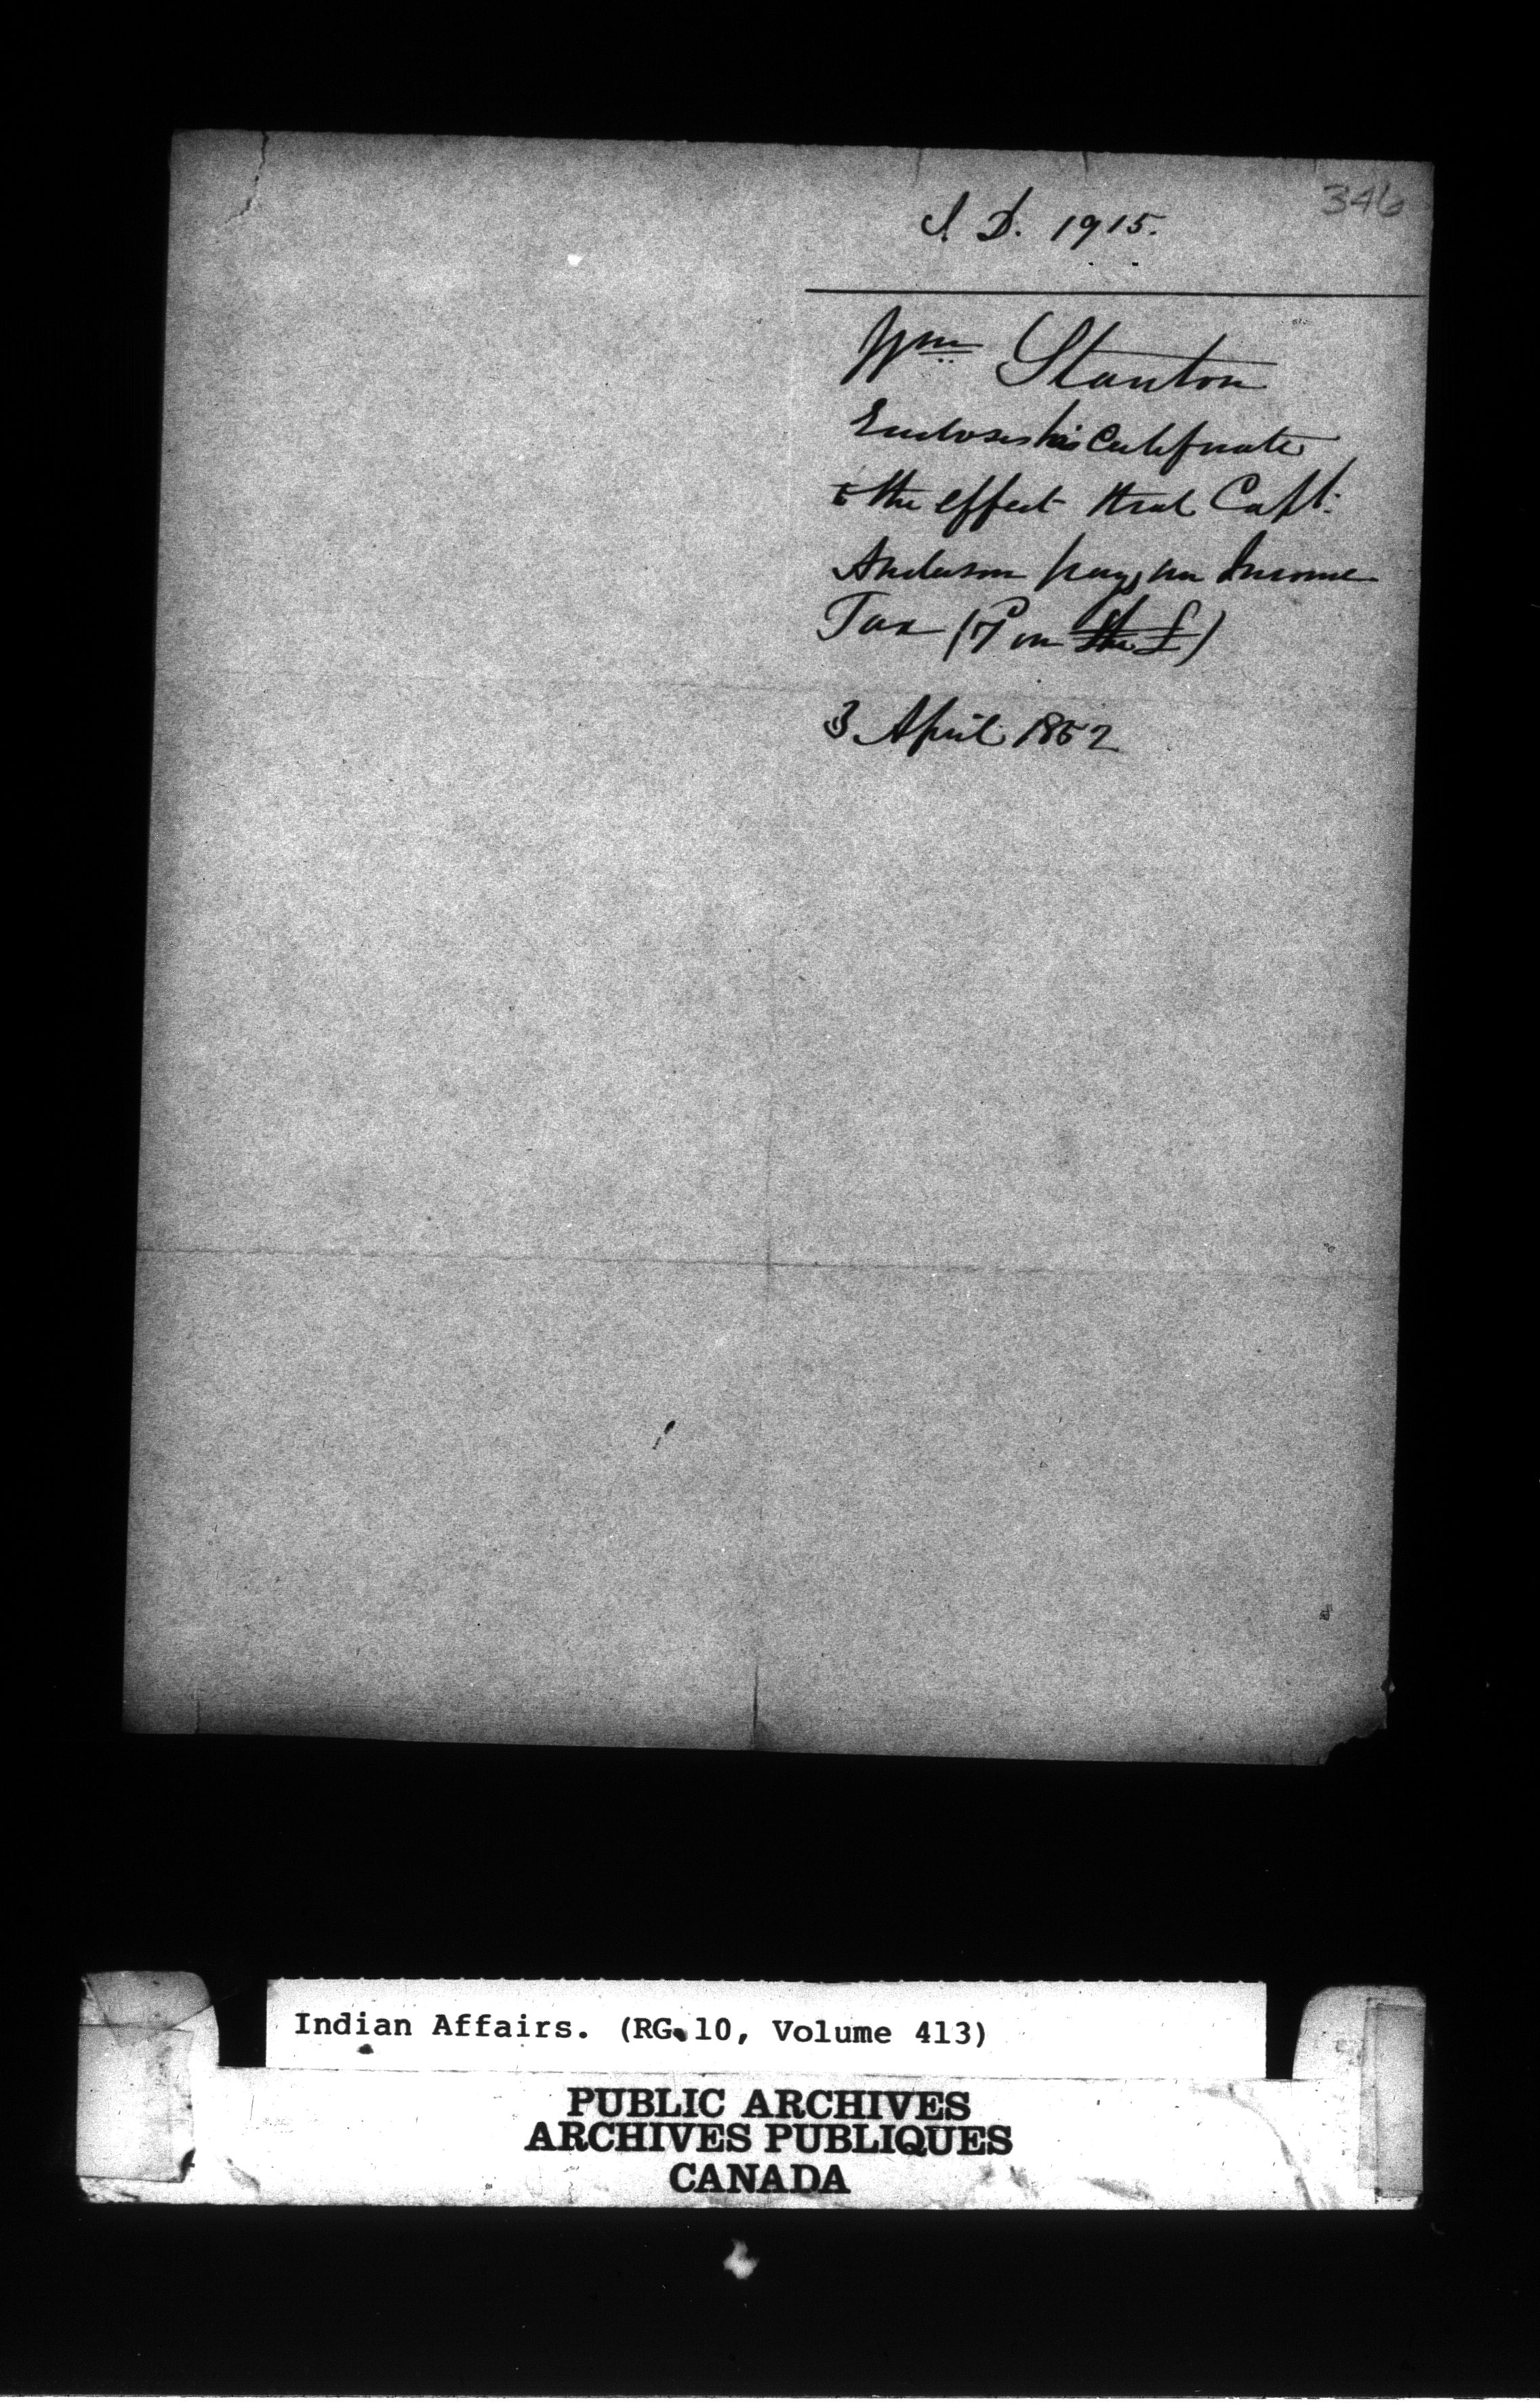 346
I. D. 1915.
Wm Stanton
Encloses his Certificate
to the effect that Capt.
Anderson pays no Income
Tax (7d on the £)
3 April 1852
Indian Affairs. (RG. 10, Volume 413)
PUBLIC ARCHIVES
ARCHIVES PUBLIQUES
CANADA